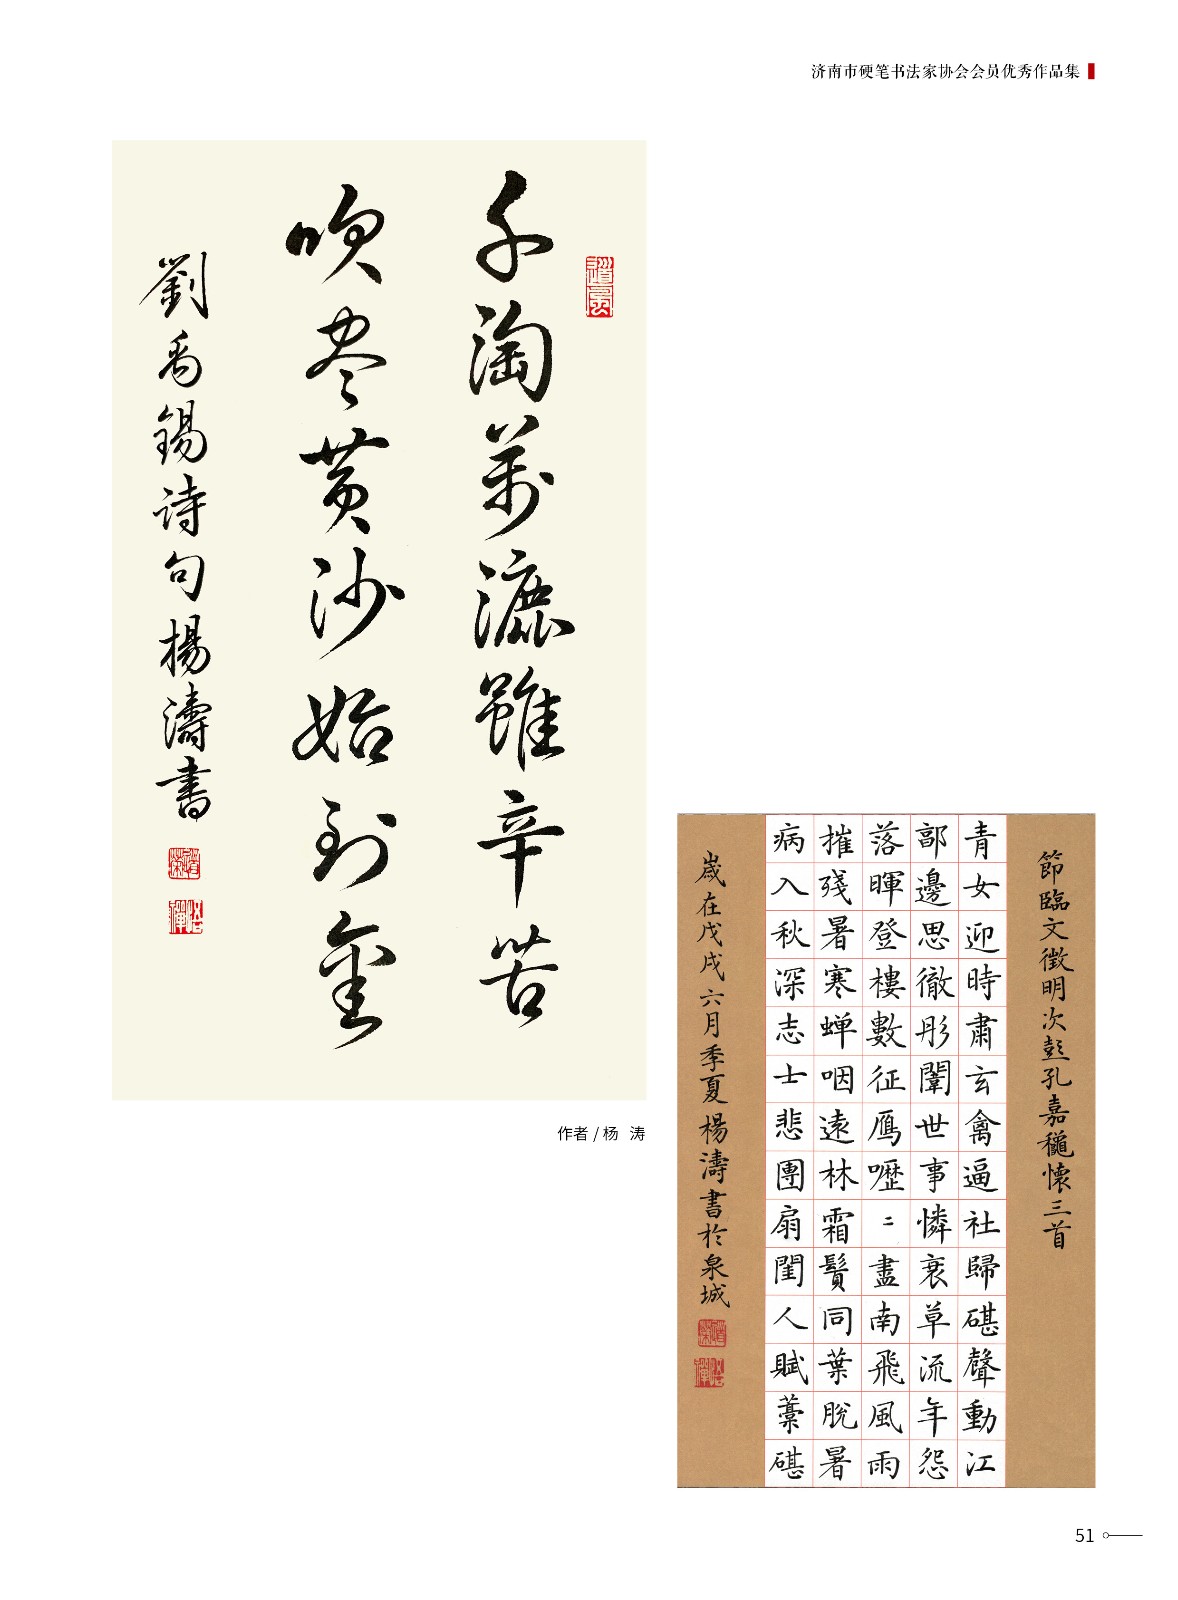 济南市硬笔书法家协会会员优秀作品集
千淘万漉雖辛苦
吹尽黄沙始到金
劉禹锡诗句楊濤書
作者 / 杨 涛
節臨文徵明次彭孔嘉穐懐三首
青女迎時肅玄禽逼社歸碪聲動江
部邊思徹彤闈世事憐衰草流年怨
落暉登樓數征鴈嚦〻盡南飛風雨
摧殘暑寒蝉咽遠林霜鬢同葉脫暑
病入秋深志士悲團扇閨人賦藁碪
嵗在戊戌六月季夏楊濤書於泉城
51